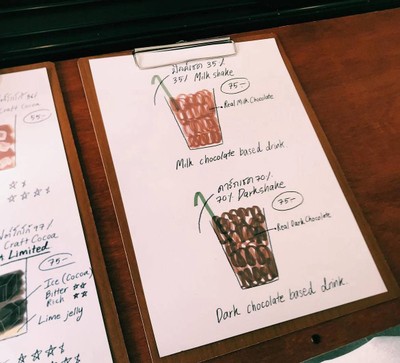 Craft Cocoa
55-
97%
Craft Cocoa
Limited
75-
Ice (Cocoa)
Bitter ☆☆
Rich ☆☆
Lime jelly
มิลค์เชค 35%
35% Milkshake
75-
Real Milk Chocolate
Milk chocolate based drink
ดาร์กเชค 70%
70% Darkshake
75-
Real Dark Chocolate
Dark chocolate based drink